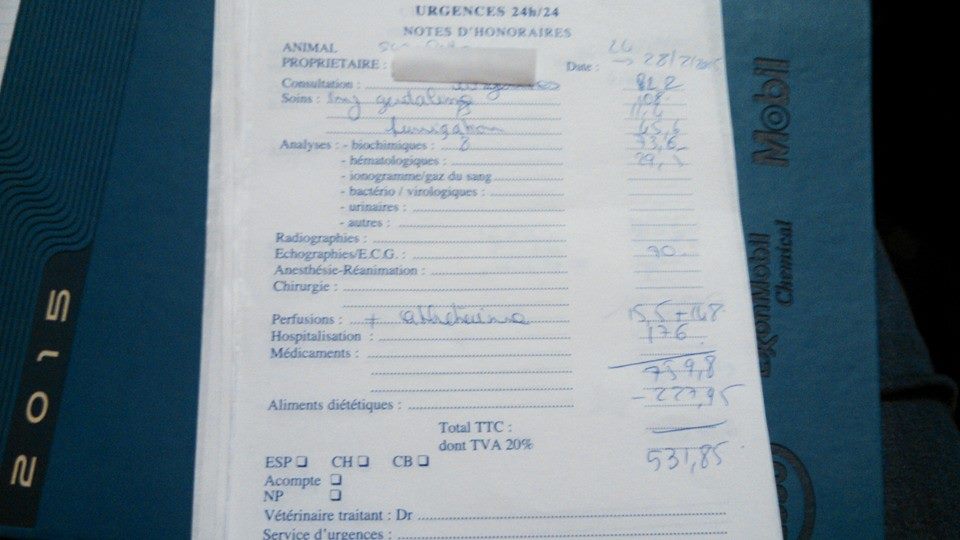 URGENCES 24h/24
NOTES D'HONORAIRES
ANIMAL
PROPRIETAIRE : Date : 26 → 28/2/2015
Consultation : 82,2
Soins : 108
fumigation 65,6
Analyses : - biochimiques : 8 73,6
- hématologiques : 29,1
- ionogramme/gaz du sang
- bactério / virologiques :
- urinaires :
- autres :
Radiographies :
Echographies/E.C.G. : 70
Anesthésie-Réanimation :
Chirurgie :
Perfusions : +
Hospitalisation : 176
Médicaments :
759,8
- 227,95
Aliments diététiques :
Total TTC :
dont TVA 20%
531,85
ESP ❑ CH ❑ CB ❑
Acompte ❑
NP ❑
Vétérinaire traitant : Dr
Service d'urgences :
2015
Mobil
ExxonMobil
Chemical